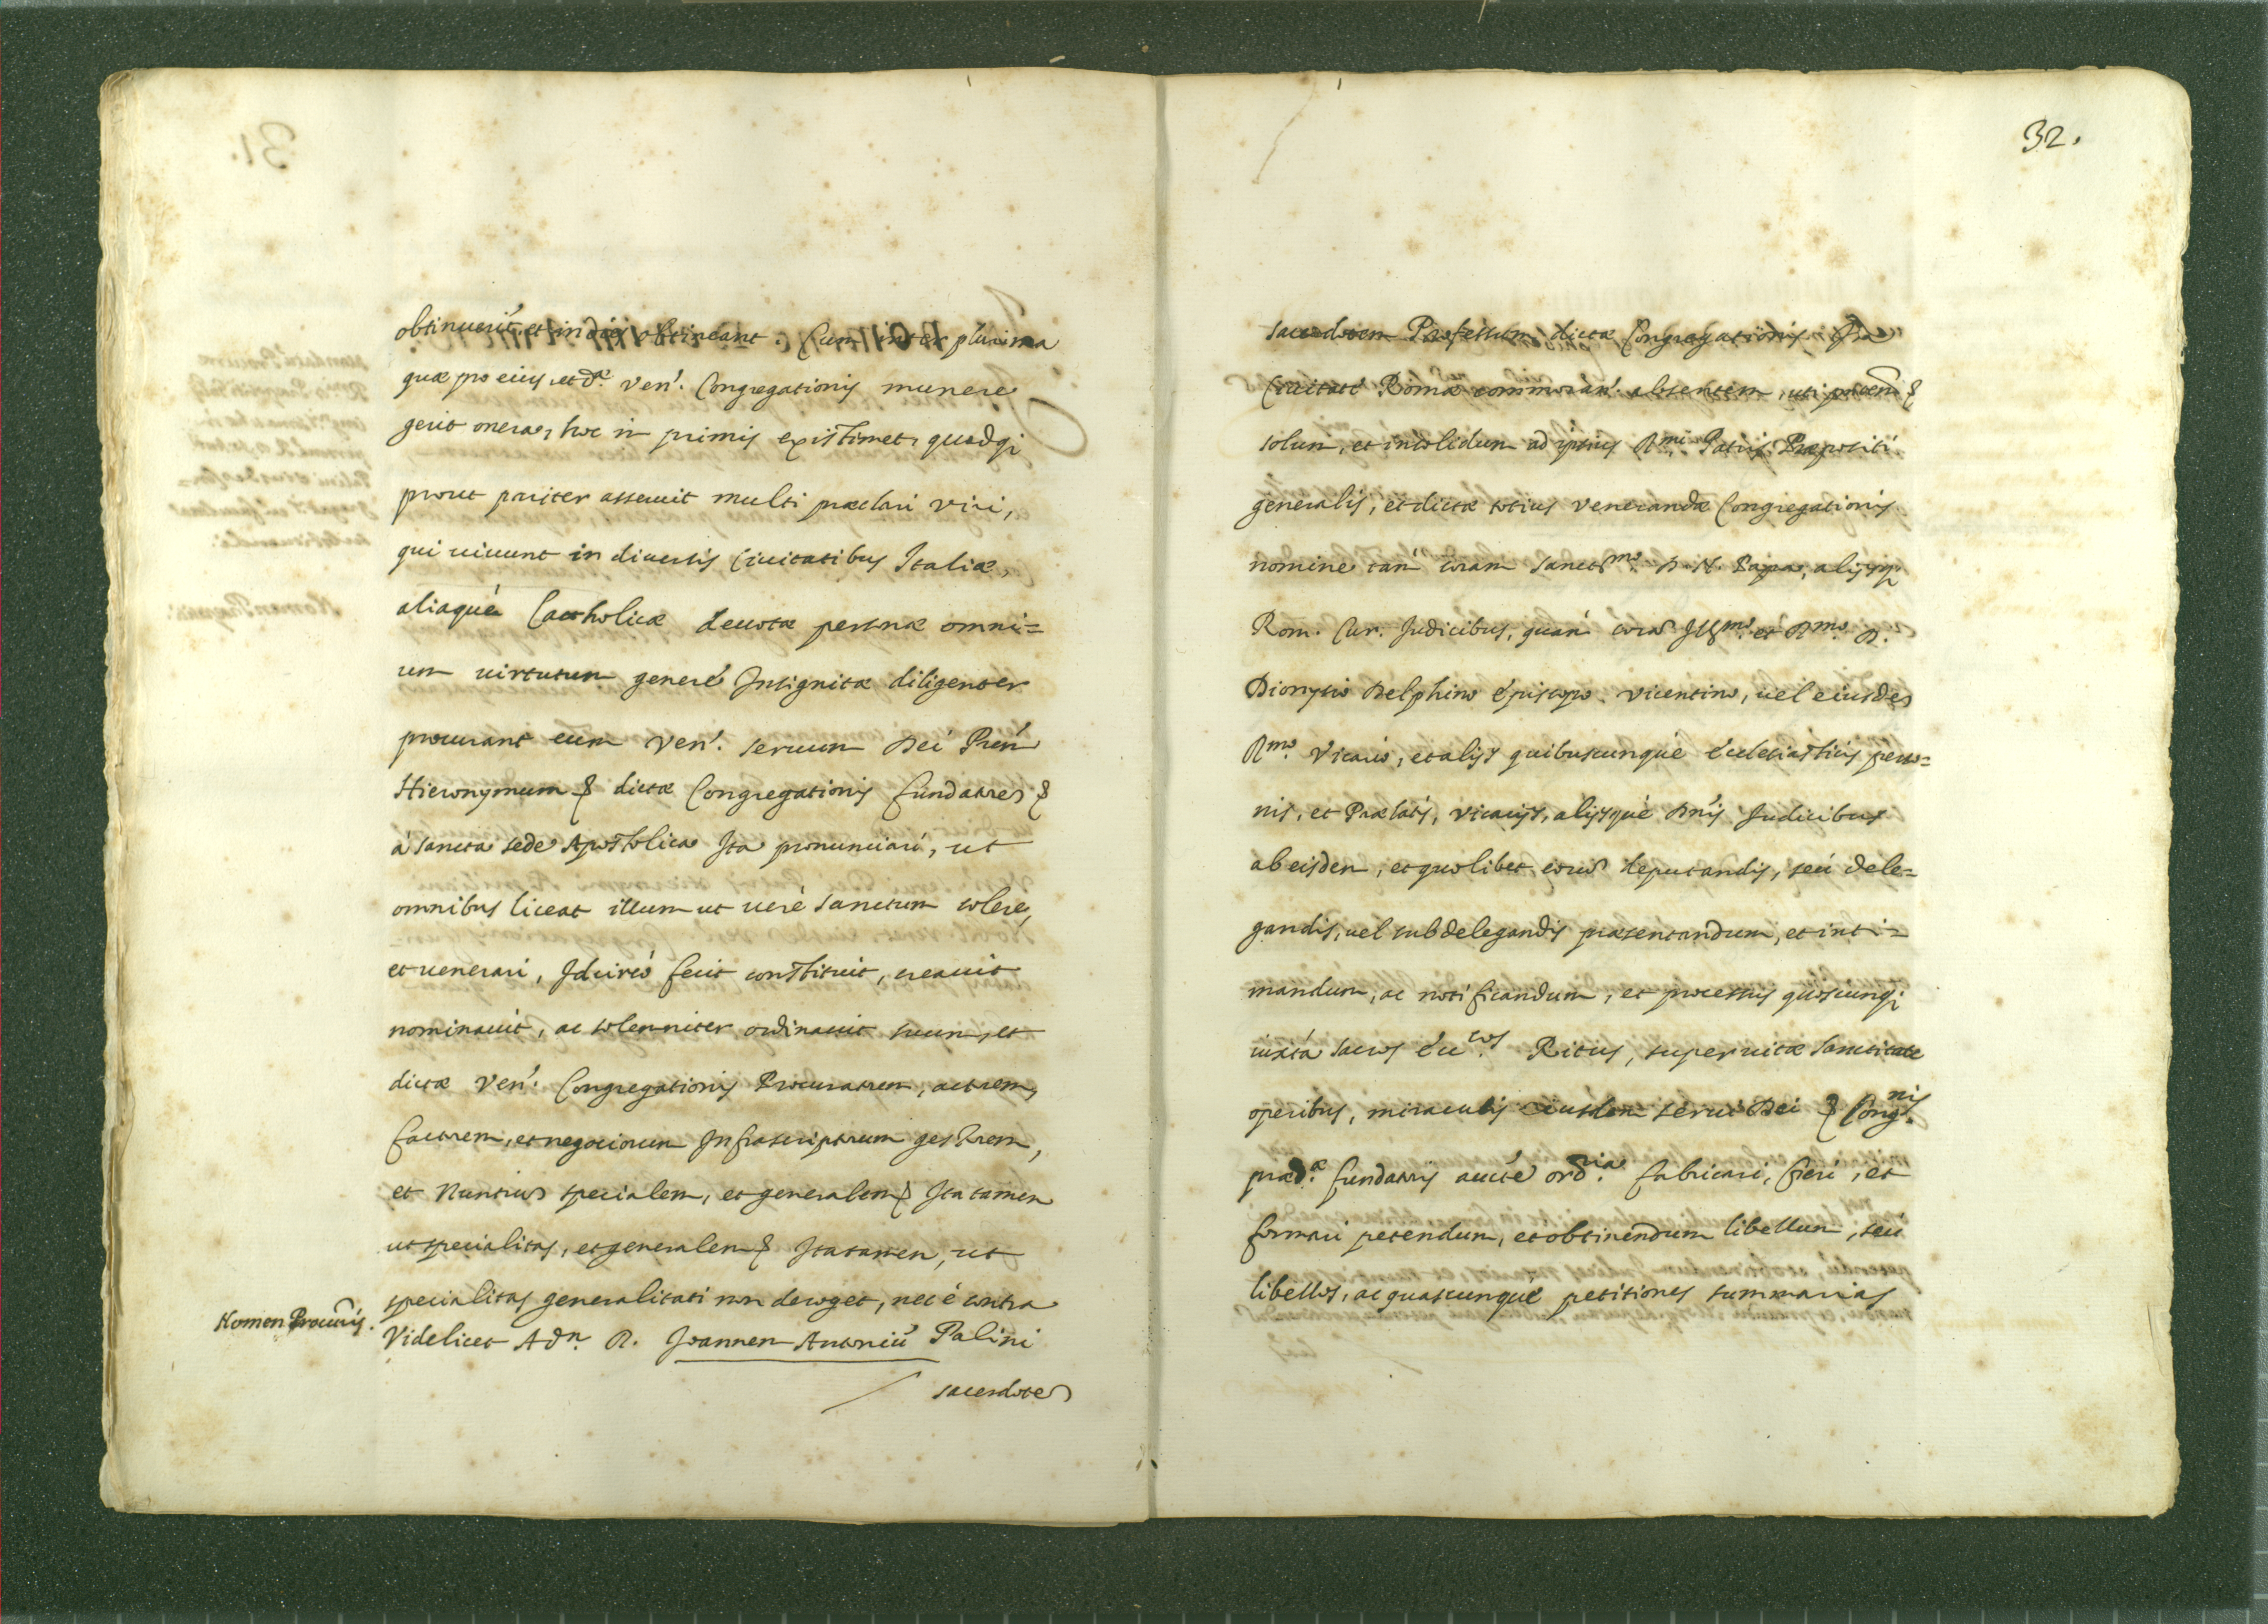 obtinuerit, et in dies obtineant. Cum inter plurima
quæ pro eius, et d.æ Ven. Congregationis munere
gerit onera, hoc in primis existimet, quod qi
prout pariter asseruit multi præclari viri,
qui uiuunt in diuersis Ciuitatibus Italiæ,
aliaquè Catholicæ deuotæ personæ omni=
um uirtutum generé Insignitæ diligenter
procurant eum Ven. seruum Dei Pren
Hieronymum & dictæ Congregationis fundatore &
à sancta sede Apostolica Ita pronunciari, ut
omnibus liceat illum ut uerè sanctum colere,
et uenerari, Idcircò fecit constituit, creauit
nominauit, ac solenniter ordinauit suum, et
dictæ Ven. Congregationis Procuratorem, actorem,
factorem, et negociorum Infrascriptorum gestorem,
et Nuntium specialem, et generalem & Ita tamen
ut specialitas, et generalem & Ita tamen, ut
specialitas generalitati non deroget, nec è contra
Nomen Procuris.
Videlicet Adm. R. Joannem Antoniu Palini
sacerdote
32.
sacerdotem Professum dictæ Congregationis
Ciuitate Romæ commoran. absentem, uti pñtem &
solum, et insolidum ad ipsius R.mi Patris Præpositi
generalis, et dictæ totius Venerandæ Congregationis
nomine tam coram Sanct.mo D. N. Papa, alijsqi
Rom. Cur. Judicibus, quam cora Ill.mo et R.mo D.
Dionysio Delphino Episcopo Vicentino, uel eiusde
R.mo Vicario, et alijs quibuscunquè ecclesiasticis perso=
nis, et Prælatis, Vicarijs, alijsquè Dnis Judicibus
ab eisdem, et quolibet eoru deputandis, seù dele=
gandis, uel subdelegandis præsentandum, et inti=
mandum, ac notificandum, et processus quoscunqi
iuxtà sacros Ritus, super uitæ sanctitate
operibus, miraculis eiusdem serui Dei & Cong.nis
præd.æ fundatoris aucte ord.ria fabricari, fieri, et
formari petendum, et obtinendum libellum, seù
libellos, ac quascunquè petitiones summarias